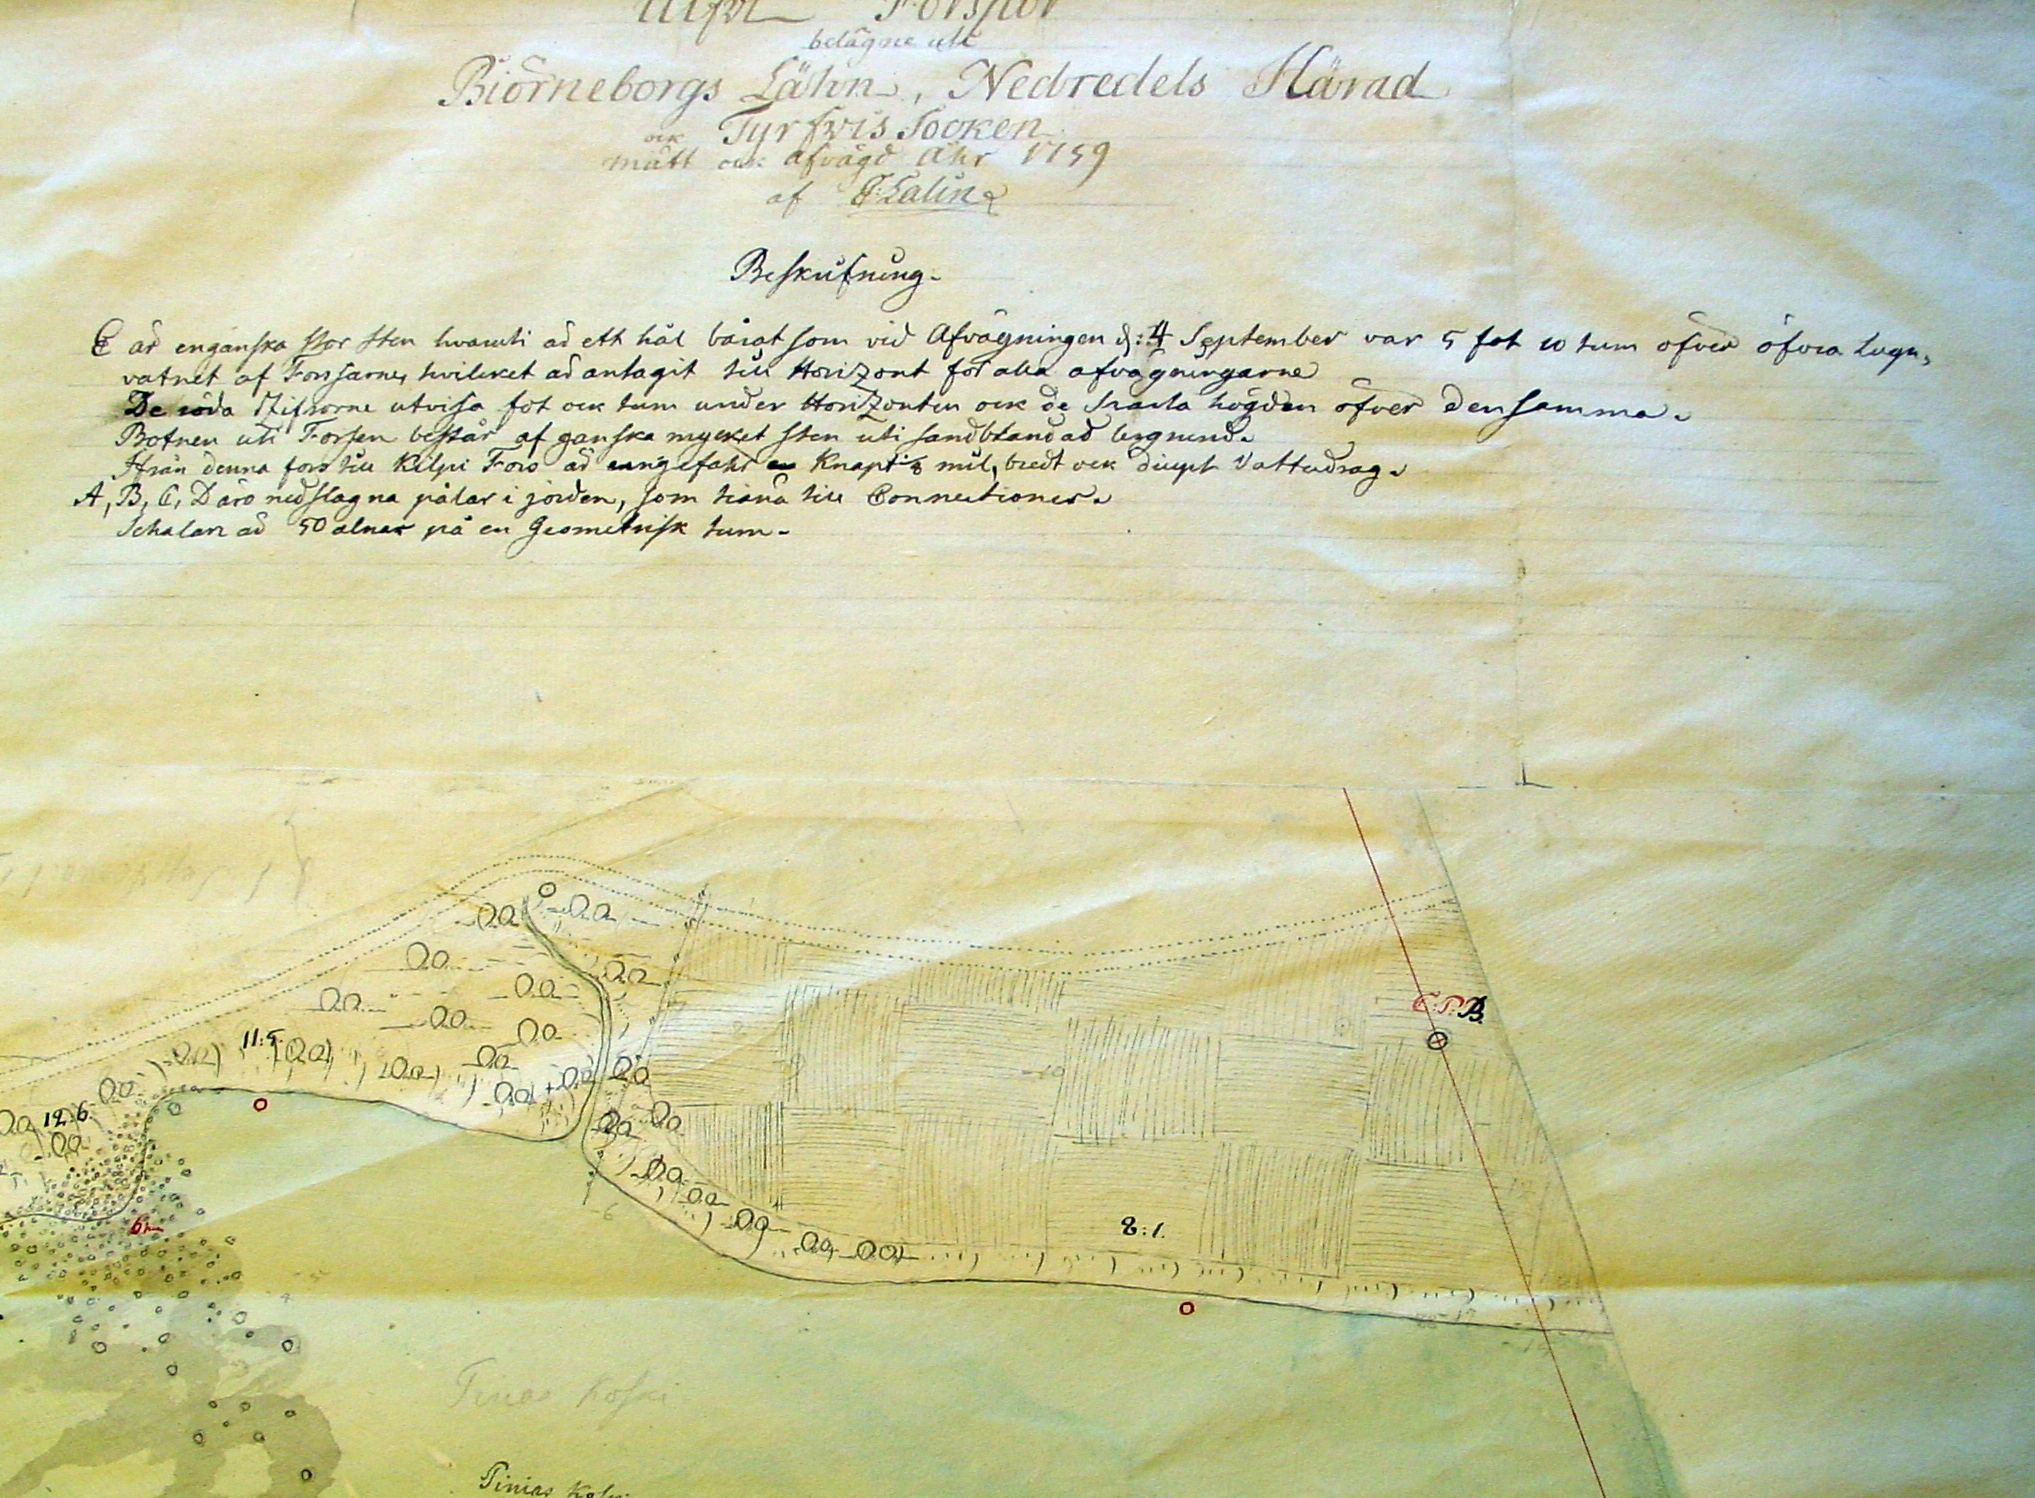 belägne uti
Biörneborgs Lähn, Nedredels Härad
ock Tyrfwis Socken
mätt ock afvägd Åhr 1759
af
Beskrifning.
E är en ganska stor sten hvaruti är ett hål bårat som vid Afvägningen d: 4 September var 5 fot 10 tum öfver öfvra lugn,
vatnet af Forssarne, hvilcket är antagit till Horizont för alla afvägningarne
De röda Ziffrorne utvisa fot ock tum under Horizonten ock de svarta högden öfver densamma.
Botnen uti Forsen består af ganska mycket sten uti sandblandad
Ifrån denna fors till Kilpi Fors är ungefähr knapt 1/8 mil, bredt ock diupt Vattudrag.
A, B, C, D äro nedslagna pålar i jorden, som tiäna till Connectioner.
Schalan är 50 alnar på en Geometrisk tum.
C.P.B.
11:5
12:6
8:1.
Tinas Koski
Tinias Koski